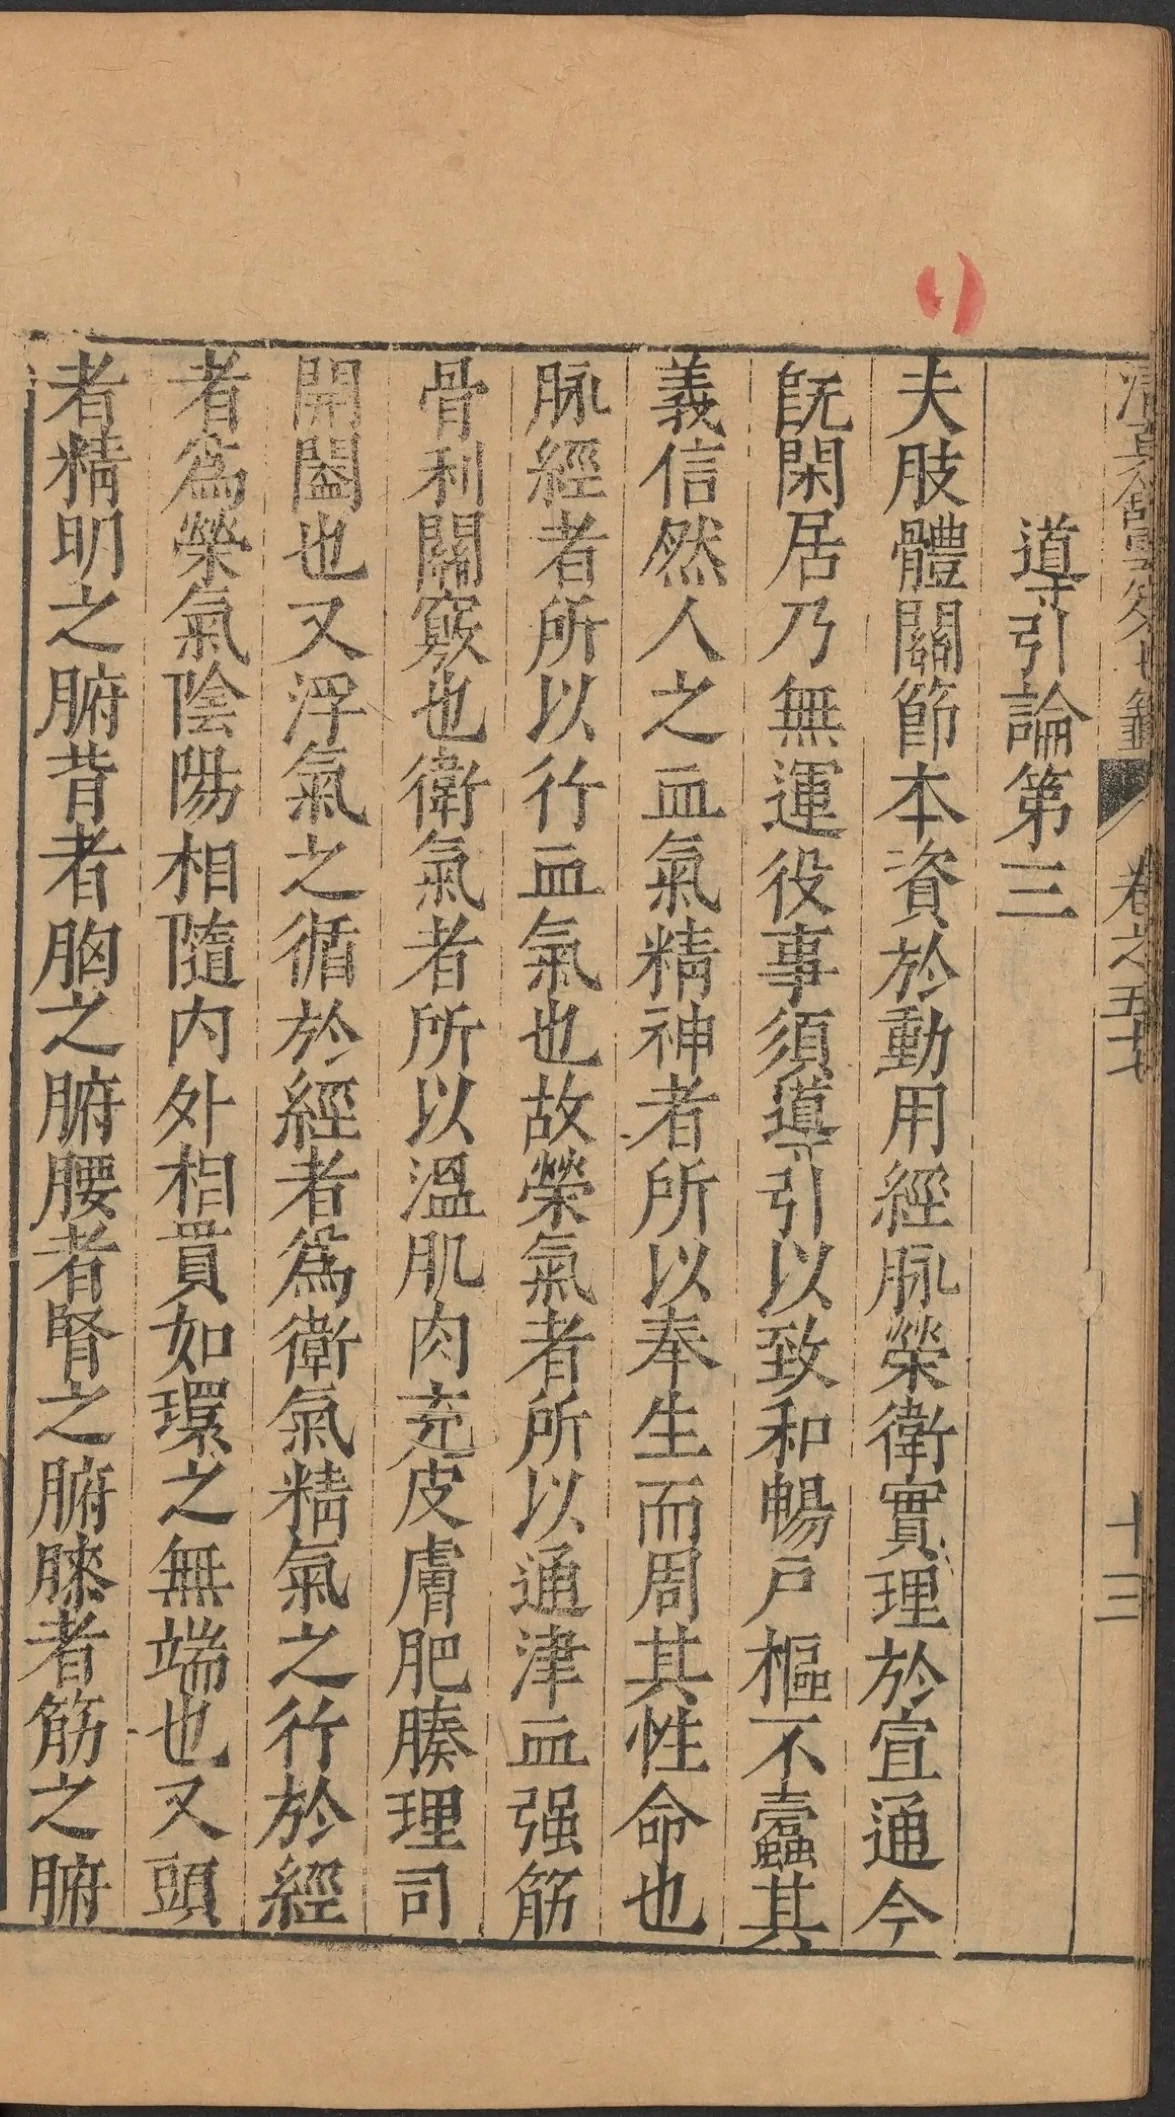 清真館雲笈七籤 卷之五十七 十三
導引論第三
夫肢體關節本資於動用經脉榮衛實理於宣通今
旣閑居乃無運役事須導引以致和暢戶樞不蠹其
義信然人之血氣精神者所以奉生而周其性命也
脉經者所以行血氣也故榮氣者所以通津血强筋
骨利關竅也衛氣者所以溫肌肉充皮膚肥腠理司
開闔也又浮氣之循於經者爲衛氣精氣之行於經
者爲榮氣陰陽相隨内外相貫如環之無端也又頭
者精明之腑背者胸之腑腰者腎之腑膝者筋之腑